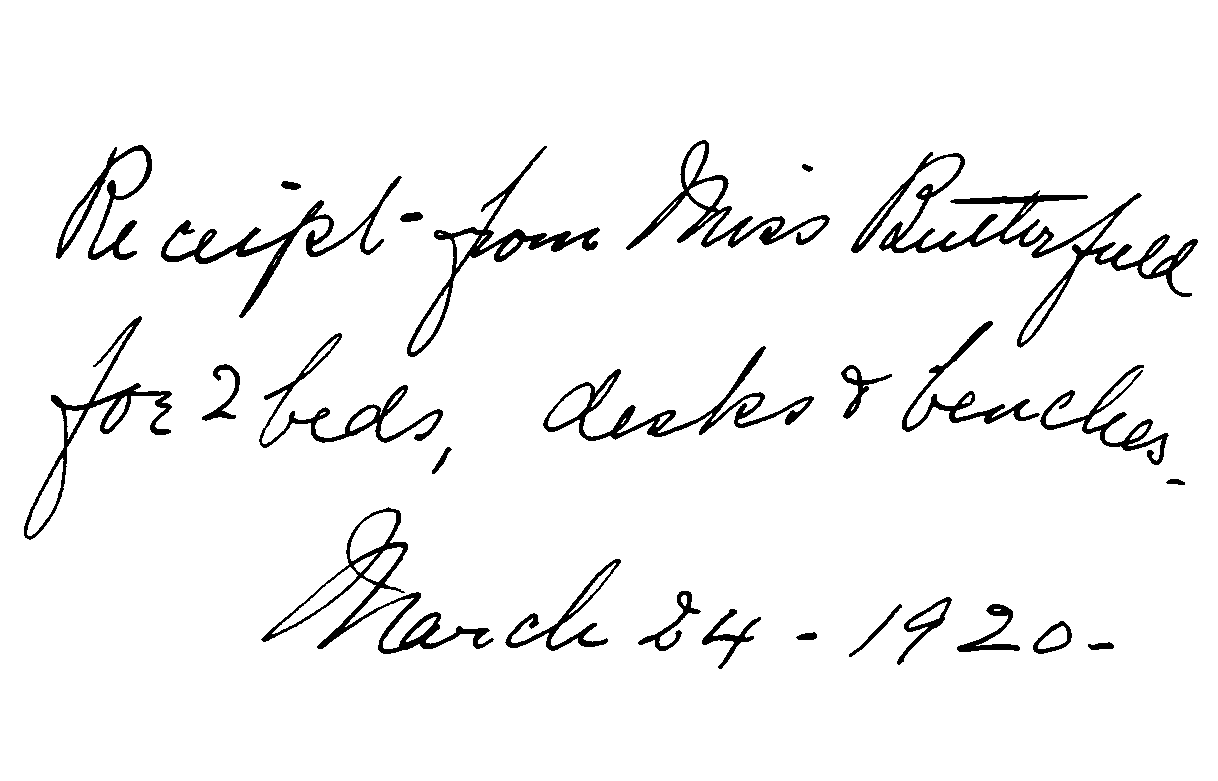 Receipt - from Miss Butterfield
for 2 beds, desks & benches.
March 24 - 1920 -